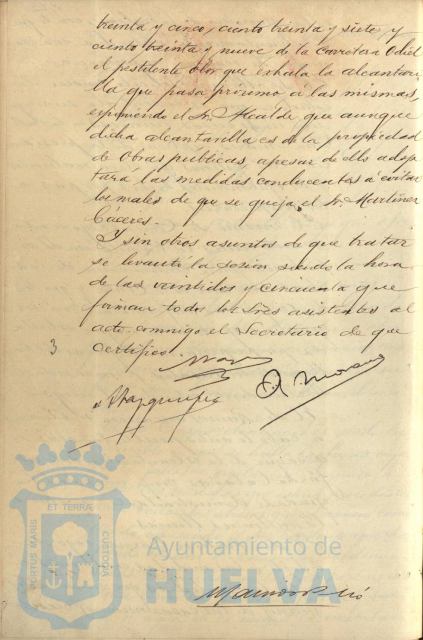 treinta y cinco, ciento treinta y siete y
ciento treinta y nueve de la carretera Odiel
el pestilente olor que exhala la alcantari
lla que pasa próximo a las mismas,
exponiendo el Sr. Alcalde que aunque
dicha alcantarilla es de la propiedad
de Obras públicas, apesar de ello adop
tará las medidas conducentes a evitar
los males de que se queja el Sr. Martinez
Cáceres.
Y sin otros asuntos de que tratar
se levantó la sesión siendo la hora
de las veintidos y cincuenta que
firman todos los Sres asistentes al
acto conmigo el Secretario de que
certifico.
3
PORTUS MARIS
ET TERRÆ
CUSTODIA
Ayuntamiento de
HUELVA